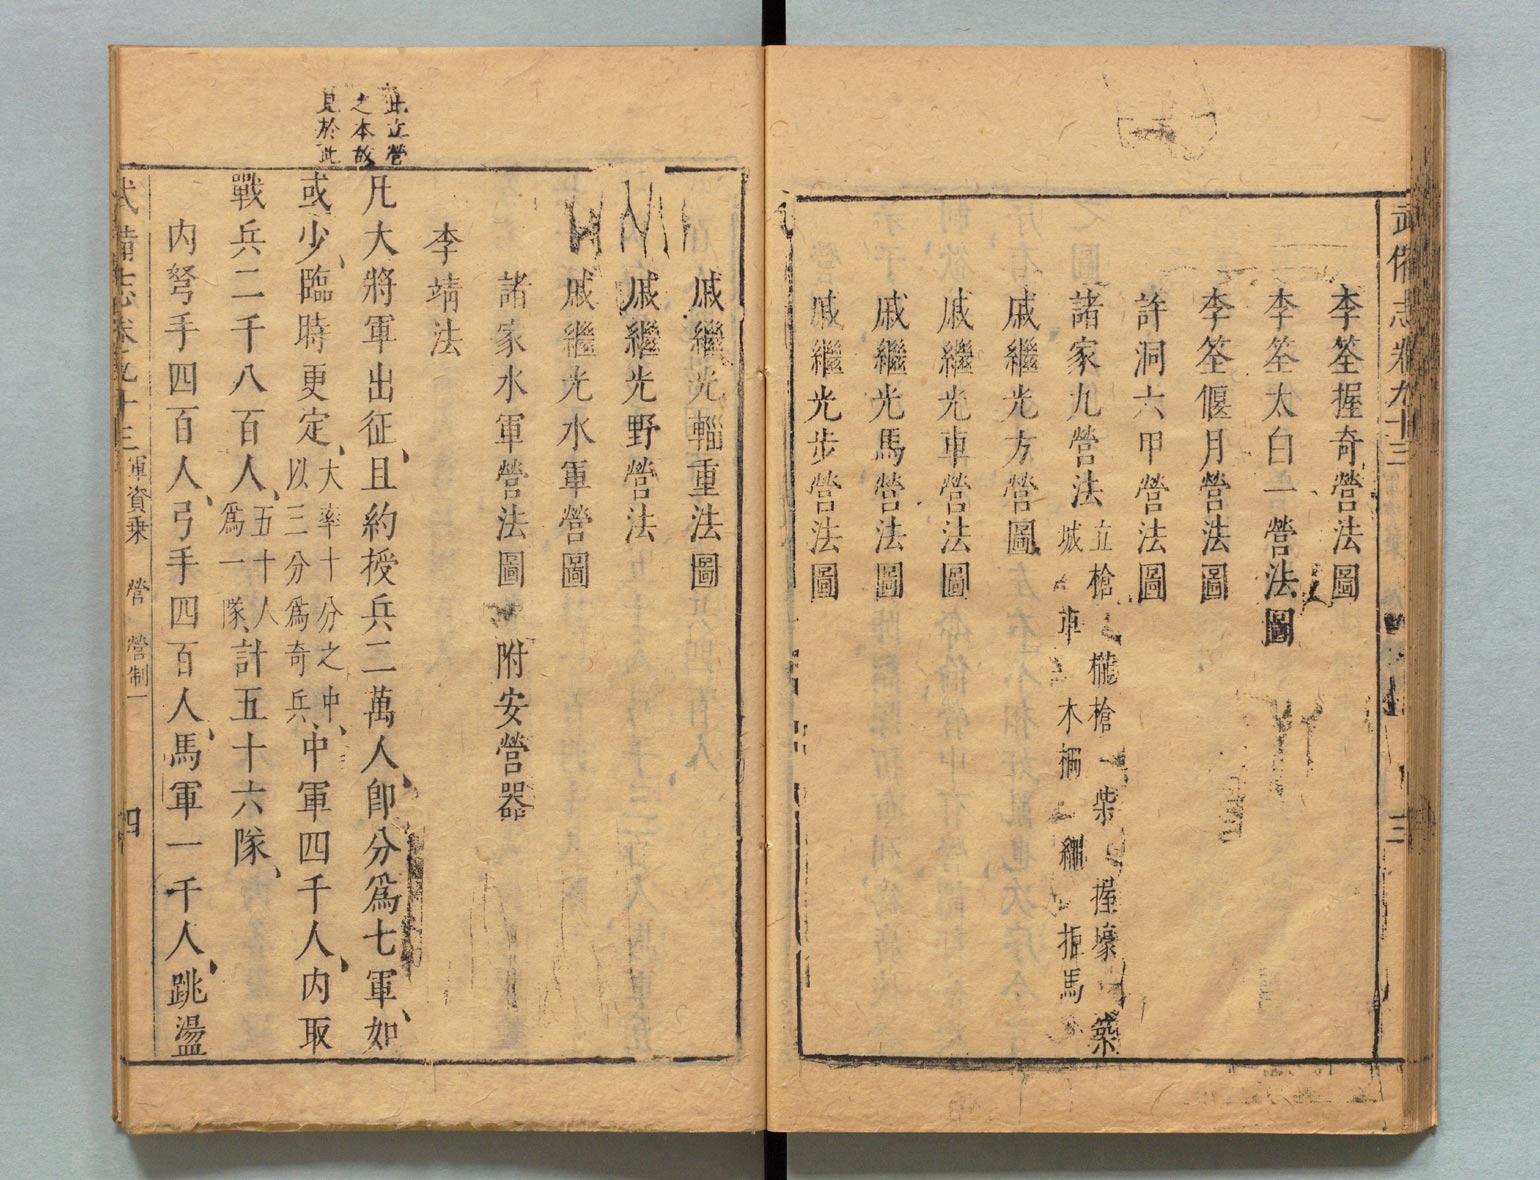 武備志卷九十三
三
李筌握奇營法圖
李筌太白一營法圖
李筌偃月營法圖
許洞六甲營法圖
諸家九營法
立槍 櫳槍 柴 掘壕 築
城 車 木柵 繩 拒馬
戚繼光方營圖
戚繼光車營法圖
戚繼光馬營法圖
戚繼光步營法圖
戚繼光輜重法圖
戚繼光野營法
戚繼光水軍營圖
諸家水軍營法圖 附安營器
李靖法
此立營
之本故
見於此
凡大將軍出征、且約授兵二萬人、卽分爲七軍、如
或少、臨時更定、大率十分之中、以三分爲奇兵、中軍四千人、内取
戰兵二千八百人、五十人爲一隊、計五十六隊、
内弩手四百人、弓手四百人、馬軍一千人、跳盪
武備志卷九十三 軍資乘 營 營制一
四